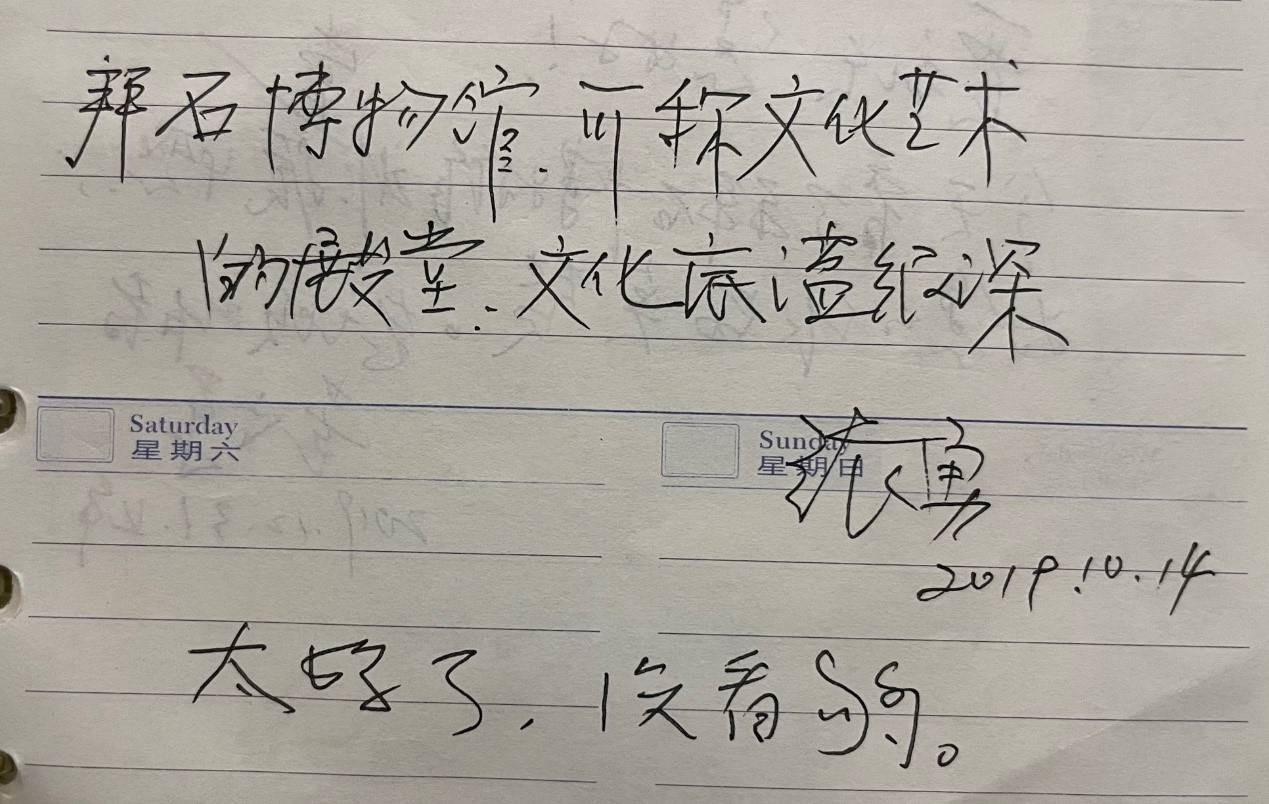 拜石博物馆.可称文化艺术
的殿堂.文化底蕴很深
Saturday
星期六
Sunday
星期日
勇
2019.10.14
太好了,没看够。